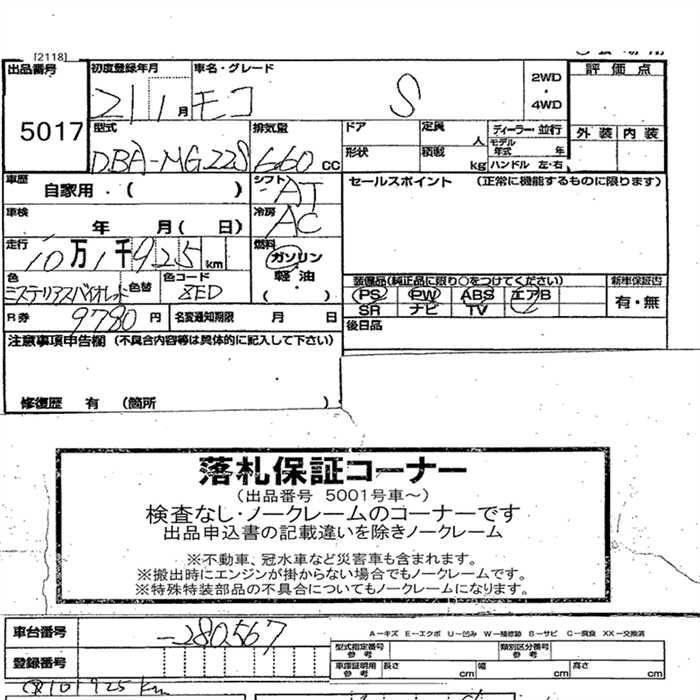 [2118]
出品番号 初度登録年月 車名・グレード 2WD・4WD 評価点
5017 21 1月 モコ S
型式 排気量 ドア 定員 人 ディーラー・並行 外装 内装
DBA-MG22S 660 CC 形状 積載 kg モデル年式 年 ハンドル 左・右
車歴 自家用・( ) シフト AT セールスポイント (正常に機能するものに限ります)
車検 年 月( 日) 冷房 AC
走行 10万1千925km 燃料 ガソリン・軽油 ( )
色 ミステリアスバイオレット 色替 色コード ZED
装備品(純正品に限り○をつけてください) 新車保証書
PS PW ABS エアB 有・無
SR ナビ TV
R券 9780円 名変通知期限 月 日 後日品
注意事項申告欄 (不具合内容等は具体的に記入して下さい)
修復歴 有 (箇所 )
落札保証コーナー
(出品番号 5001号車~)
検査なし・ノークレームのコーナーです
出品申込書の記載違いを除きノークレーム
※不動車、冠水車など災害車も含まれます。
※搬出時にエンジンが掛からない場合でもノークレームです。
※特殊特装部品の不具合についてもノークレームになります。
車台番号 -280567
A-キズ E-エクボ U-凹み W-補修跡 S-サビ C-腐食 XX-交換済
登録番号 型式指定番号 参考 類別区分番号 参考
車庫証明用 参考 長さ cm 幅 cm 高さ cm
101925km